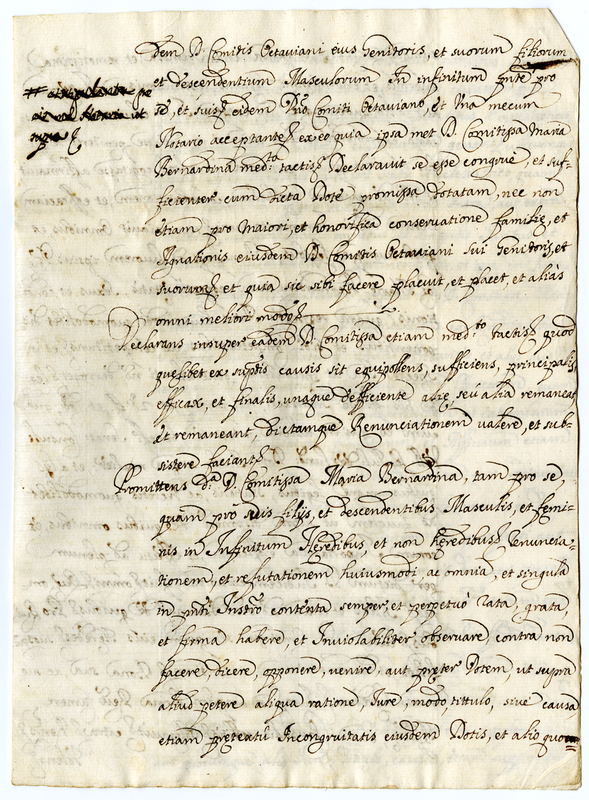 dem D. Comitis Octaviani eius Genitoris, et suorum filiorum
et descendentium Masculorum in infinitum pnte pro
se, et suis eidem Dno Comiti Octaviano, et Una mecum
Notario acceptante ex eo quia ipsa met D. Comitissa Maria
Bernardina med.to tactis Declaravit se esse congruè, et suf-
ficienter cum dicta Dote promissa dotatam, nec non
etiam pro Maiori, et honorifica conservatione familię, et
Agnationis eiusdem D. Comitis Octaviani sui Genitoris, et
suorum et quia sic sibi facere placuit, et placet, et aliàs
omni meliori modo
Declarans insuper eadem D. Comitissa etiam med.to tactis quod
quęlibet ex suptis causis sit equipollens, sufficiens, principalis
efficax, et finalis, unaque deficiente alię, seù alia remaneat
et remaneant, dictamque Renunciationem valere, et sub-
sistere faciant
Promittens D.a D. Comitissa Maria Bernardina, tam pro se,
quam pro suis filijs, et descendentibus Masculis, et femi-
nis in Infinitum Heredibus, et non heredibus Renuncia-
tionem, et refutationem huiusmodi, ac omnia, et singula
in pnti Instro contenta semper, et perpetuò rata, grata,
et firma habere, et Inviolabiliter observare contra non
facere, dicere, opponere, venire, aut pręter Dotem, ut supra
aliud petere aliqua ratione, Iure, modo, tittulo, sive causa
etiam pretextu Incongruitatis eiusdem Dotis, et alio quo-